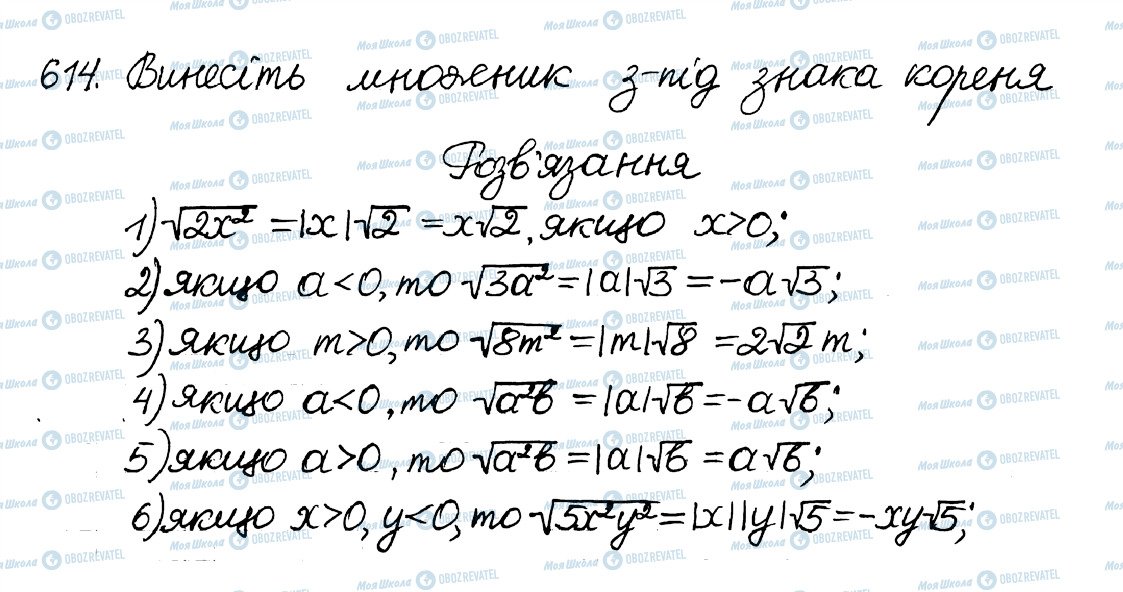 614. Винесіть множник з-під знака кореня
Розв'язання
1) √2x² = |x|√2 = x√2, якщо x>0;
2) якщо a<0, то √3a² = |a|√3 = -a√3;
3) якщо m>0, то √8m² = |m|√8 = 2√2 m;
4) якщо a<0, то √a²b = |a|√b = -a√b;
5) якщо a>0, то √a²b = |a|√b = a√b;
6) якщо x>0, y<0, то √5x²y² = |x||y|√5 = -xy√5;
Моя Школа OBOZREVATEL